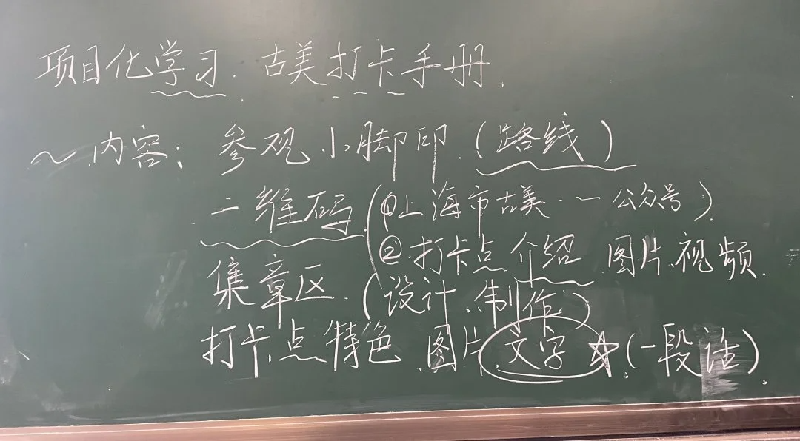 项目化学习. 古美打卡手册.
~内容: 参观小脚印.(路线)
二维码(①上海市古美·一公众号).
②打卡点介绍 图片.视频.
集章区.(设计.制作)
打卡点特色.图片.文字☆(一段话)